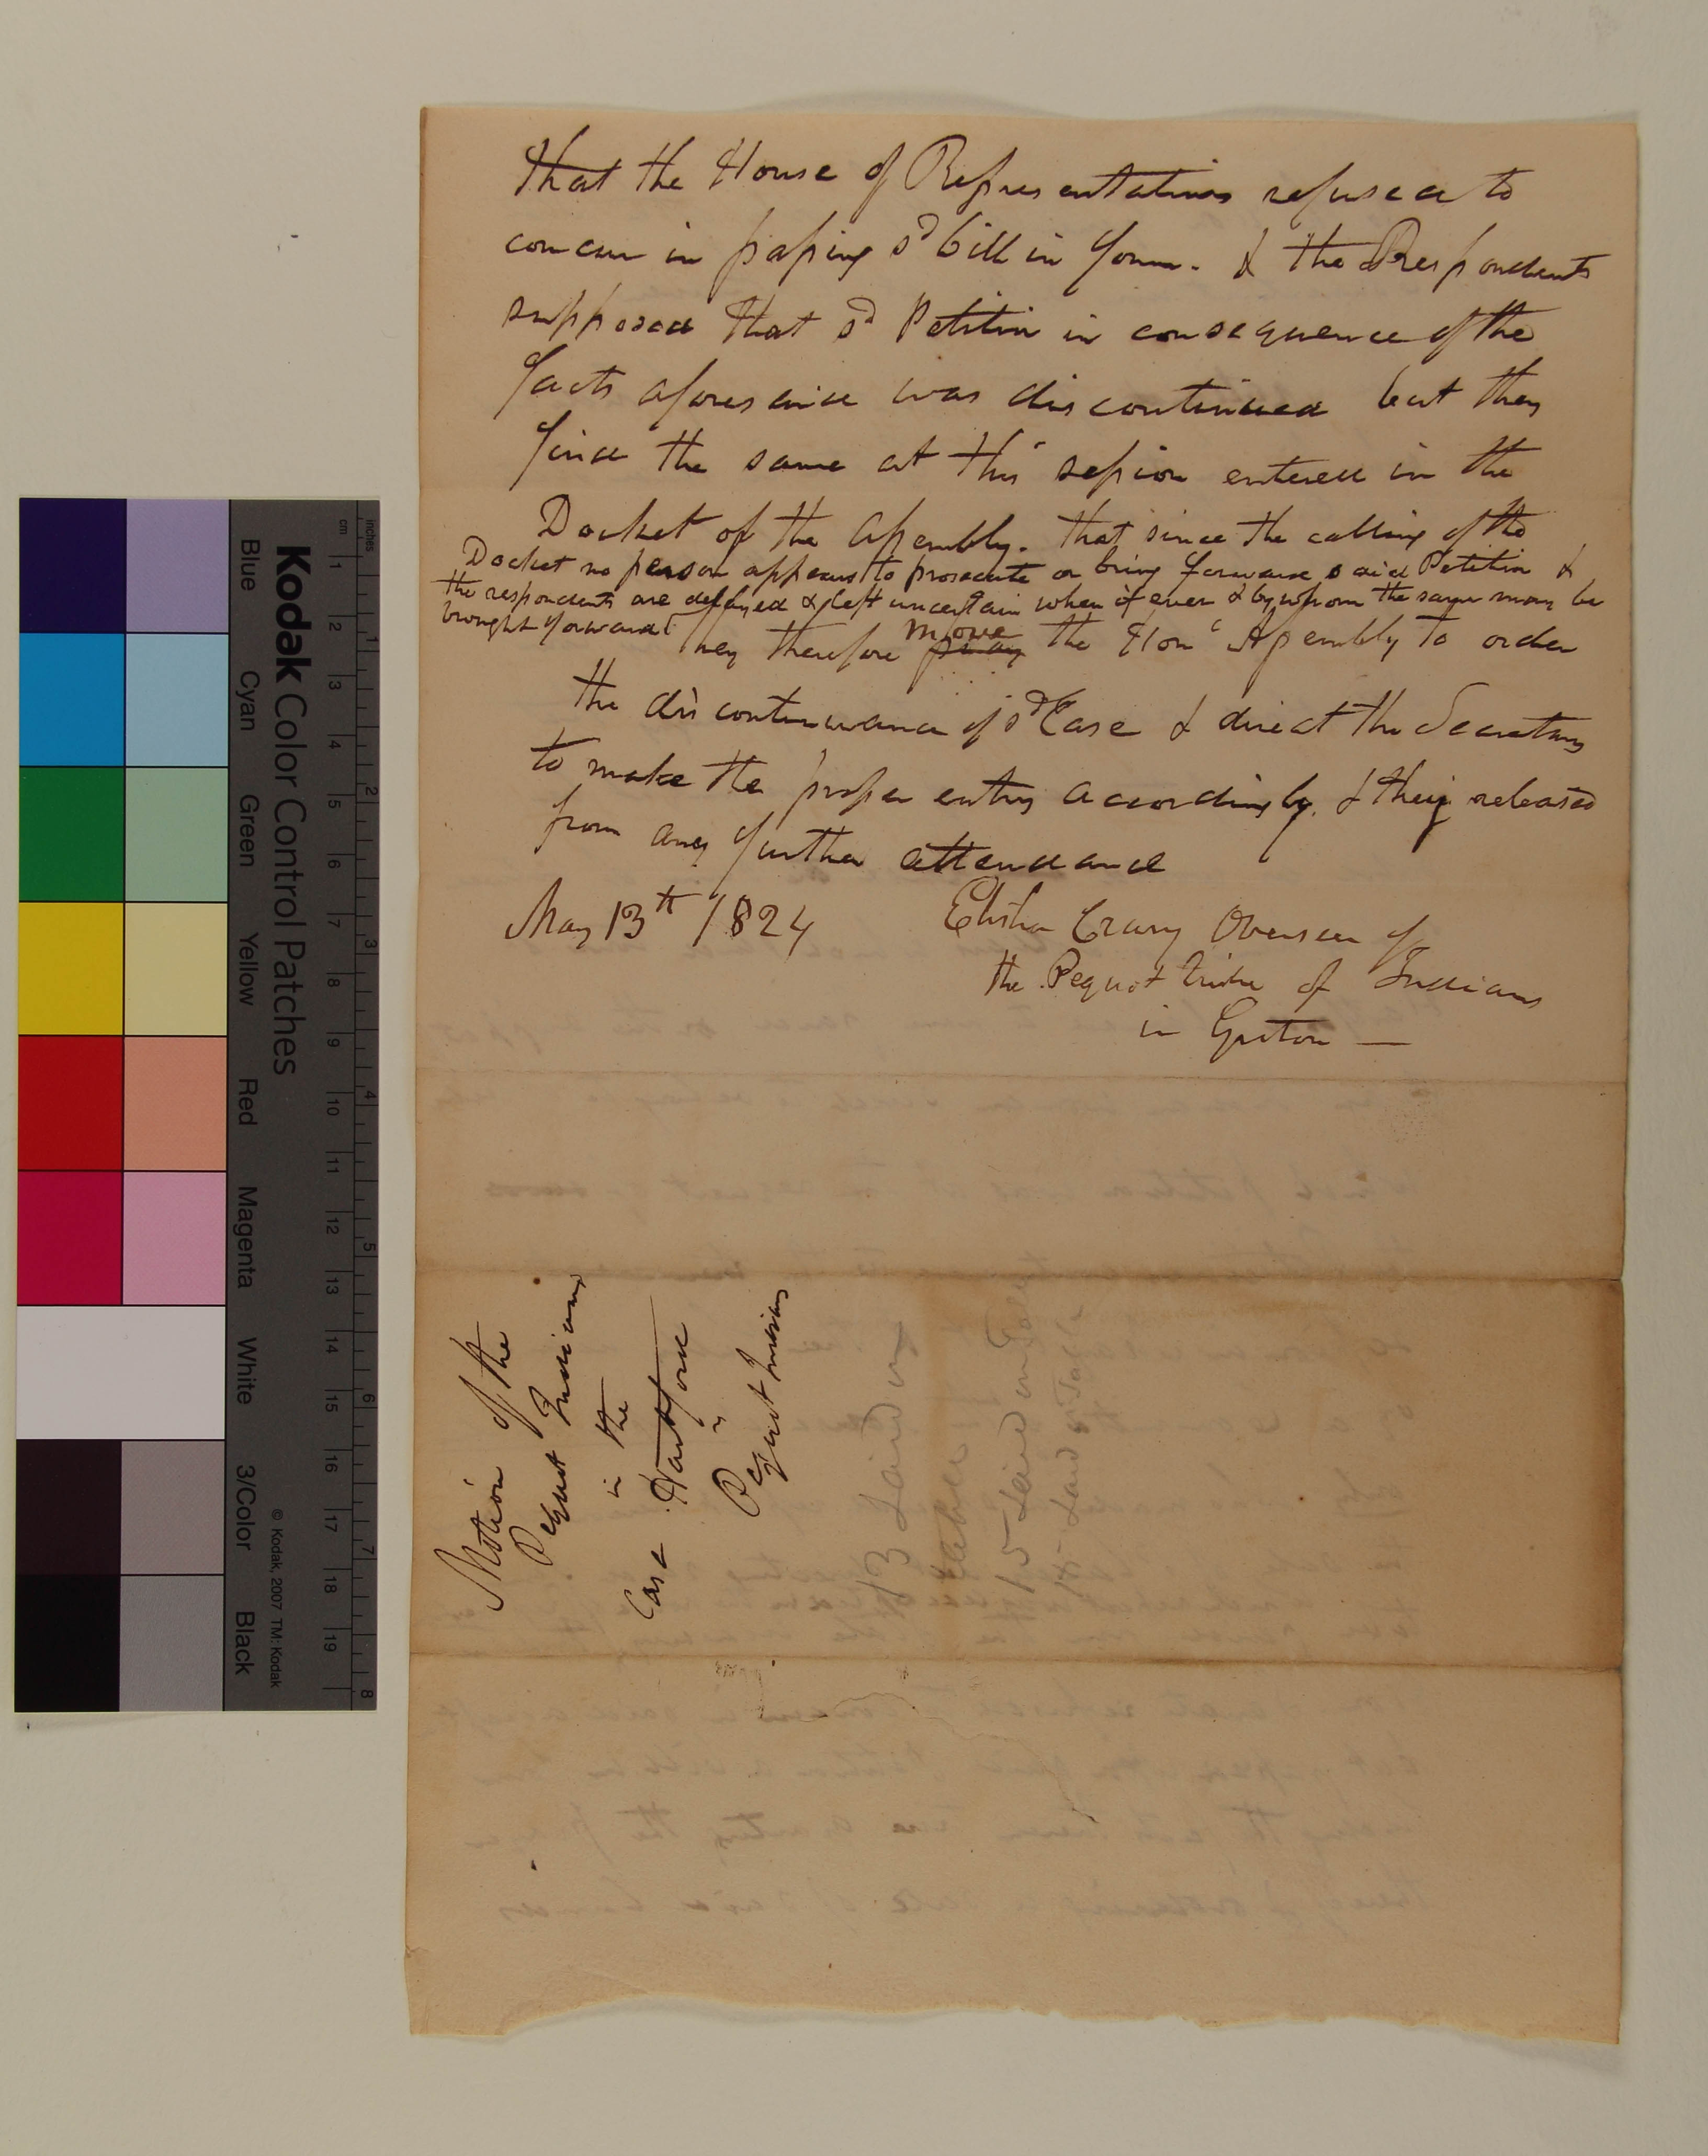 that the House of Representatives refused to
concur in passing sd bill in form. & the Respondents
supposed that sd Petition in consequence of the
facts aforesaid was discontinued but they
find the same at this session entered in the
Docket of the Assembly. that since the calling of the
Docket no person appears to prosecute or bring forward said Petition &
the respondents are delayed & left uncertain when if ever & by whom the same may be
brought forward They therefore pray move the Hone Assembly to order
the discontinuance of sd Case & direct the Secretary
to make the proper entry accordingly. & they released
from any further attendance
May 13th 1824
Elisha Crary Overseer of
the Pequot tribe of Indians
in Groton —
Motion of the
Pequot Indians
in the
Case Hartford
vs
Pequot Indians
Kodak Color Control Patches
Blue Cyan Green Yellow Red Magenta White 3/Color Black
© Kodak, 2007 TM: Kodak
cm 1 2 3 4 5 6 7 8 9 10 11 12 13 14 15 16 17 18 19
inches 1 2 3 4 5 6 7 8